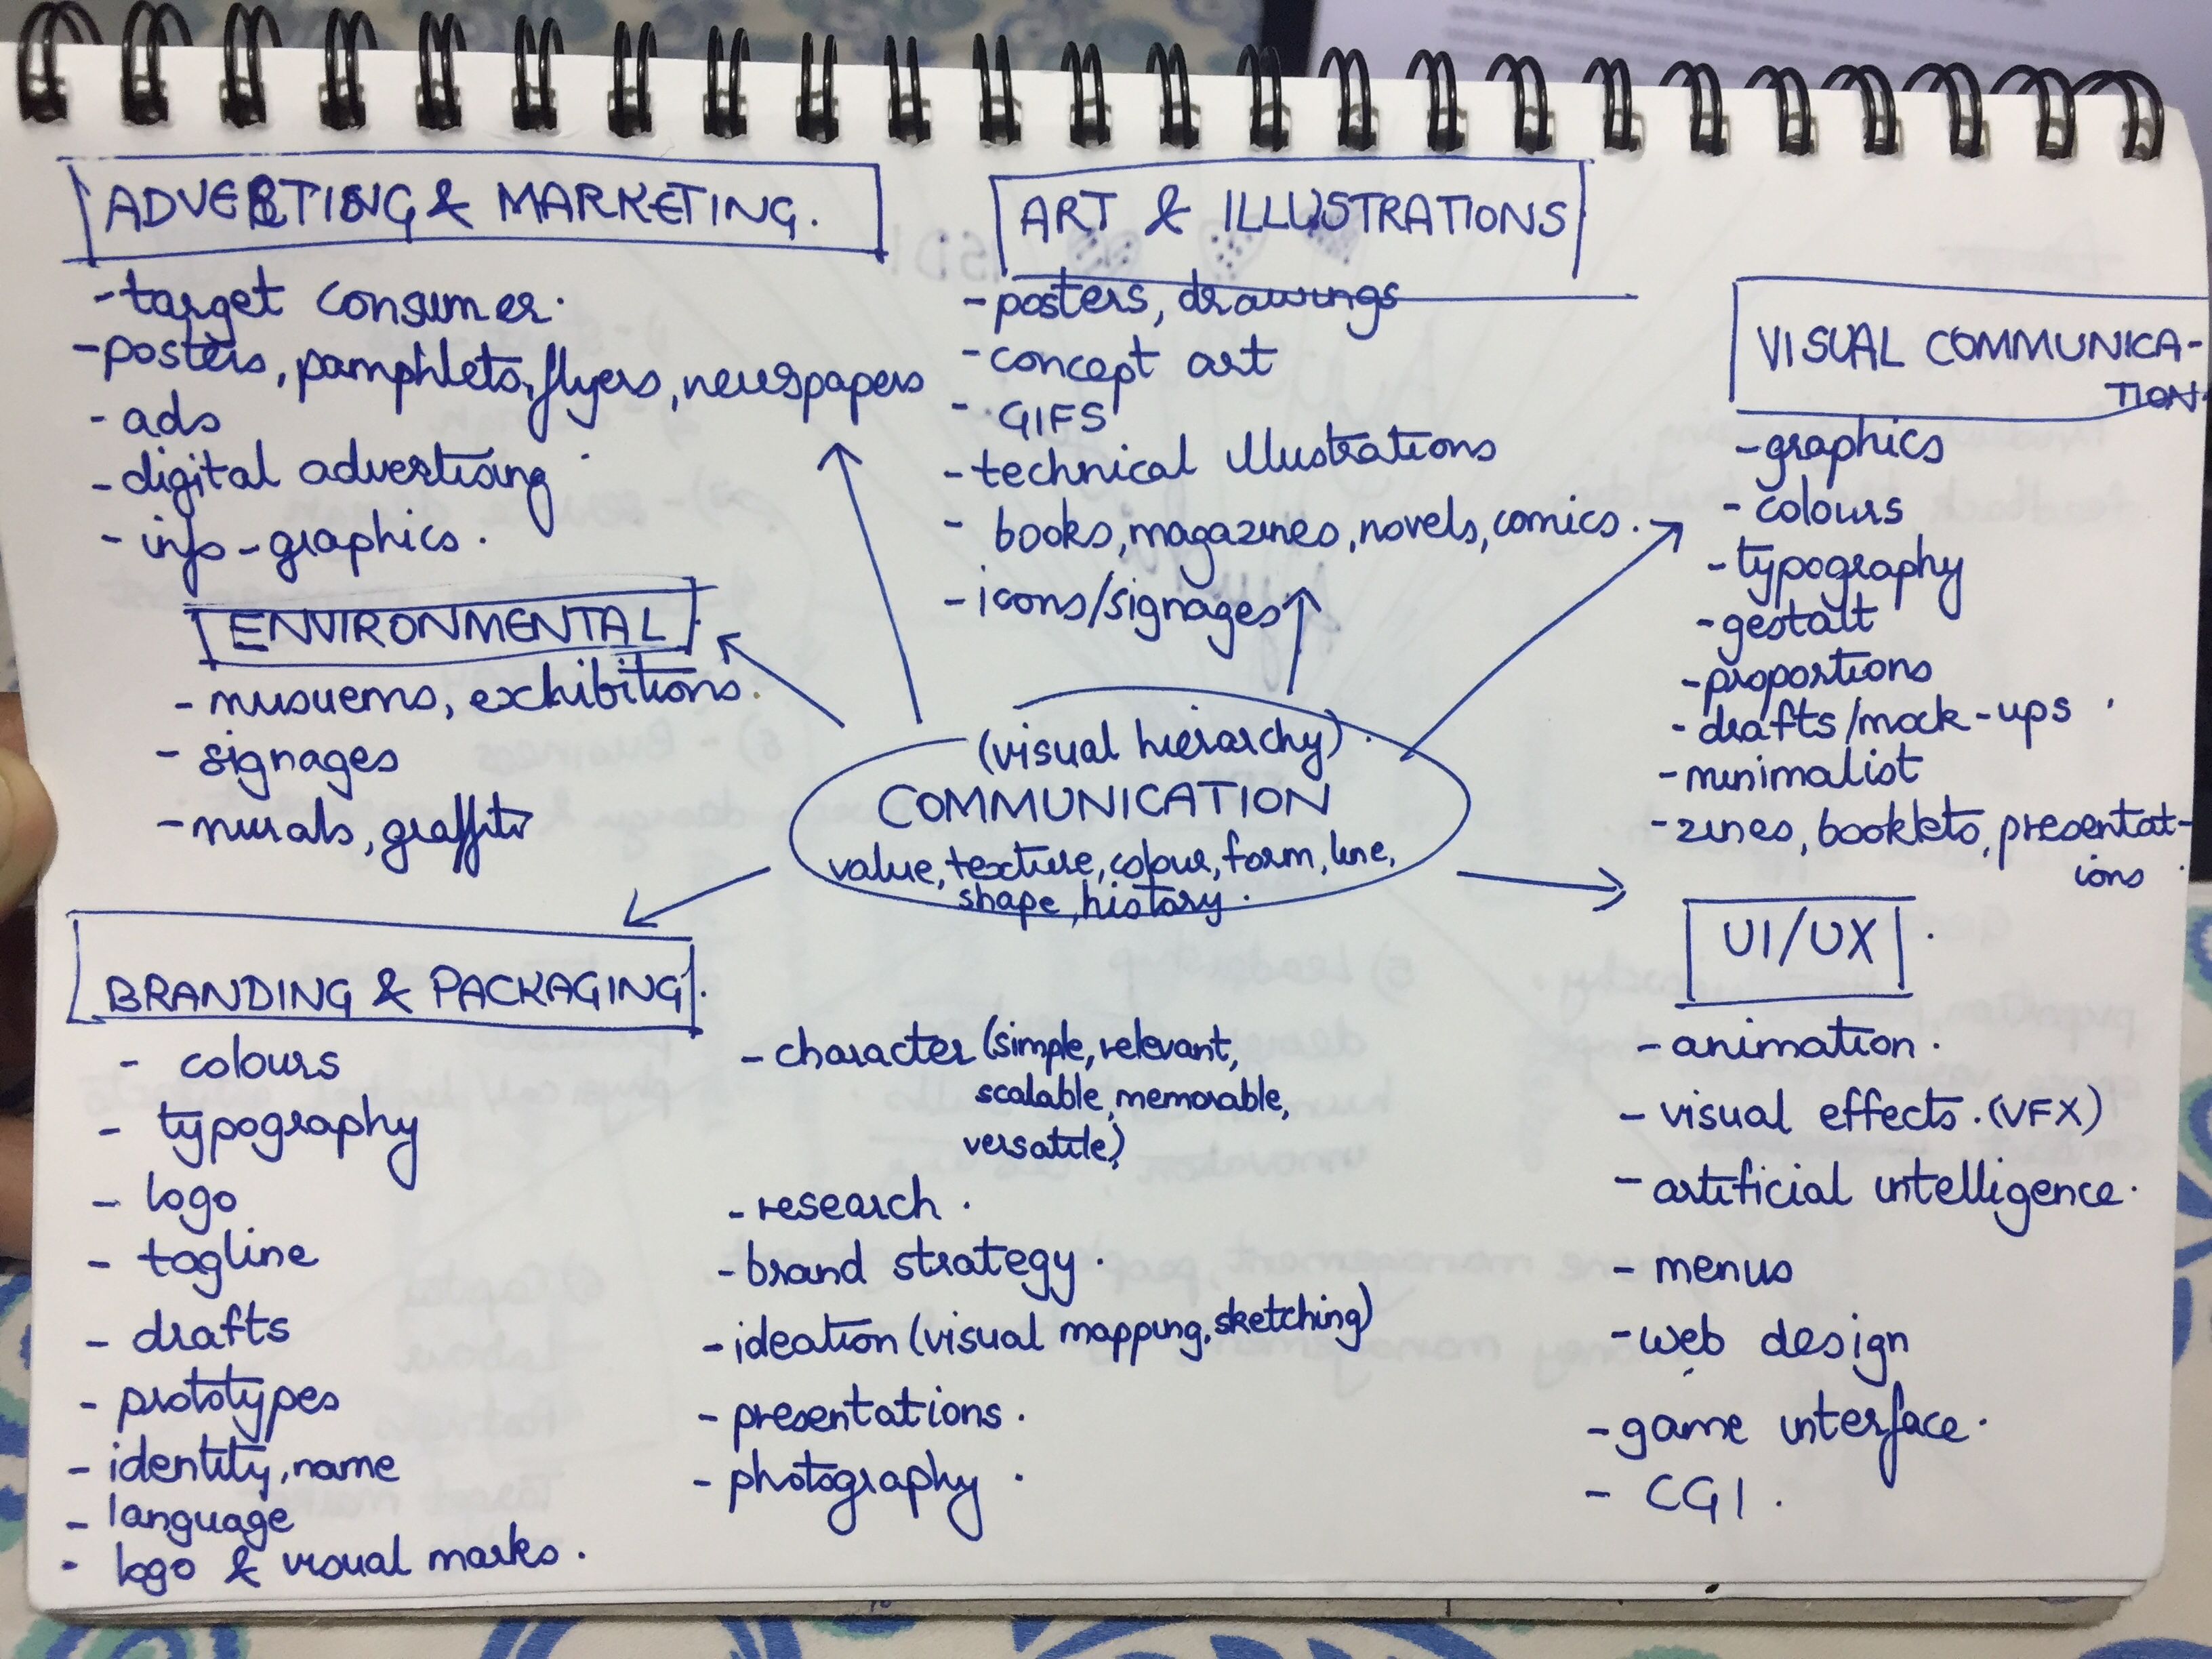 ADVERTISING & MARKETING.
- target consumer.
- posters, pamphlets, flyers, newspapers
- ads
- digital advertising
- info-graphics.
ENVIRONMENTAL
- musuems, exhibitions.
- signages
- murals, graffiti
BRANDING & PACKAGING.
- colours
- typography
- logo
- tagline
- drafts
- prototypes
- identity, name
- language
- logo & visual marks.
- character (simple, relevant,
scalable, memorable,
versatile)
- research.
- brand strategy.
- ideation (visual mapping, sketching)
- presentations.
- photography.
(visual hierarchy).
COMMUNICATION
value, texture, colour, form, line,
shape, history.
ART & ILLUSTRATIONS
- posters, drawings
- concept art
- GIFS
- technical illustrations
- books, magazines, novels, comics.
- icons/signages
VISUAL COMMUNICA-
TION
- graphics
- colours
- typography
- gestalt
- proportions
- drafts/mock-ups
- minimalist
- zines, booklets, presentat-
ions
UI/UX
- animation.
- visual effects. (VFX)
- artificial intelligence.
- menus
- web design
- game interface.
- CGI.